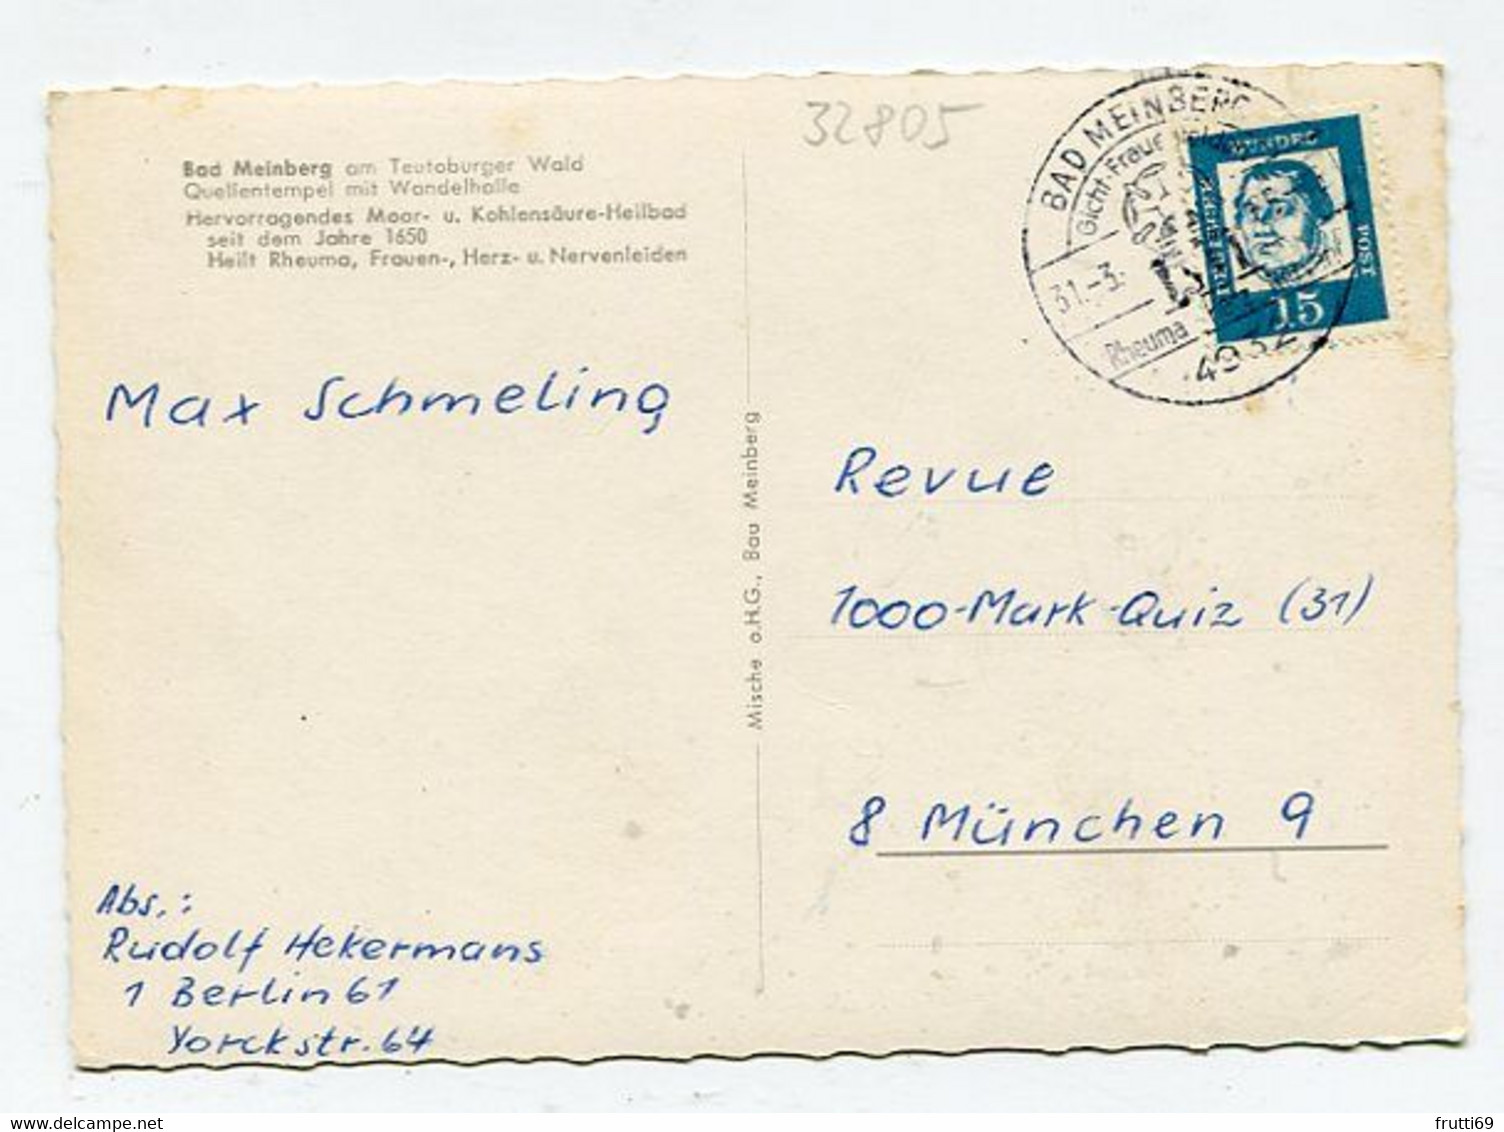 32805
Bad Meinberg am Teutoburger Wald
Quellentempel mit Wandelhalle
Hervorragendes Moor- u. Kohlensäure-Heilbad
seit dem Jahre 1650
Heilt Rheuma, Frauen-, Herz- u. Nervenleiden
BAD MEINBERG
Gicht Frauenleiden
31.-3.
Rheuma
4932
BUNDES
POST
15
Max Schmeling
Revue
1000-Mark-Quiz (31)
8 München 9
Mische o.H.G., Bau Meinberg
Abs.:
Rudolf Hekermans
1 Berlin 61
Yorckstr. 64
www.delcampe.net
frutti69